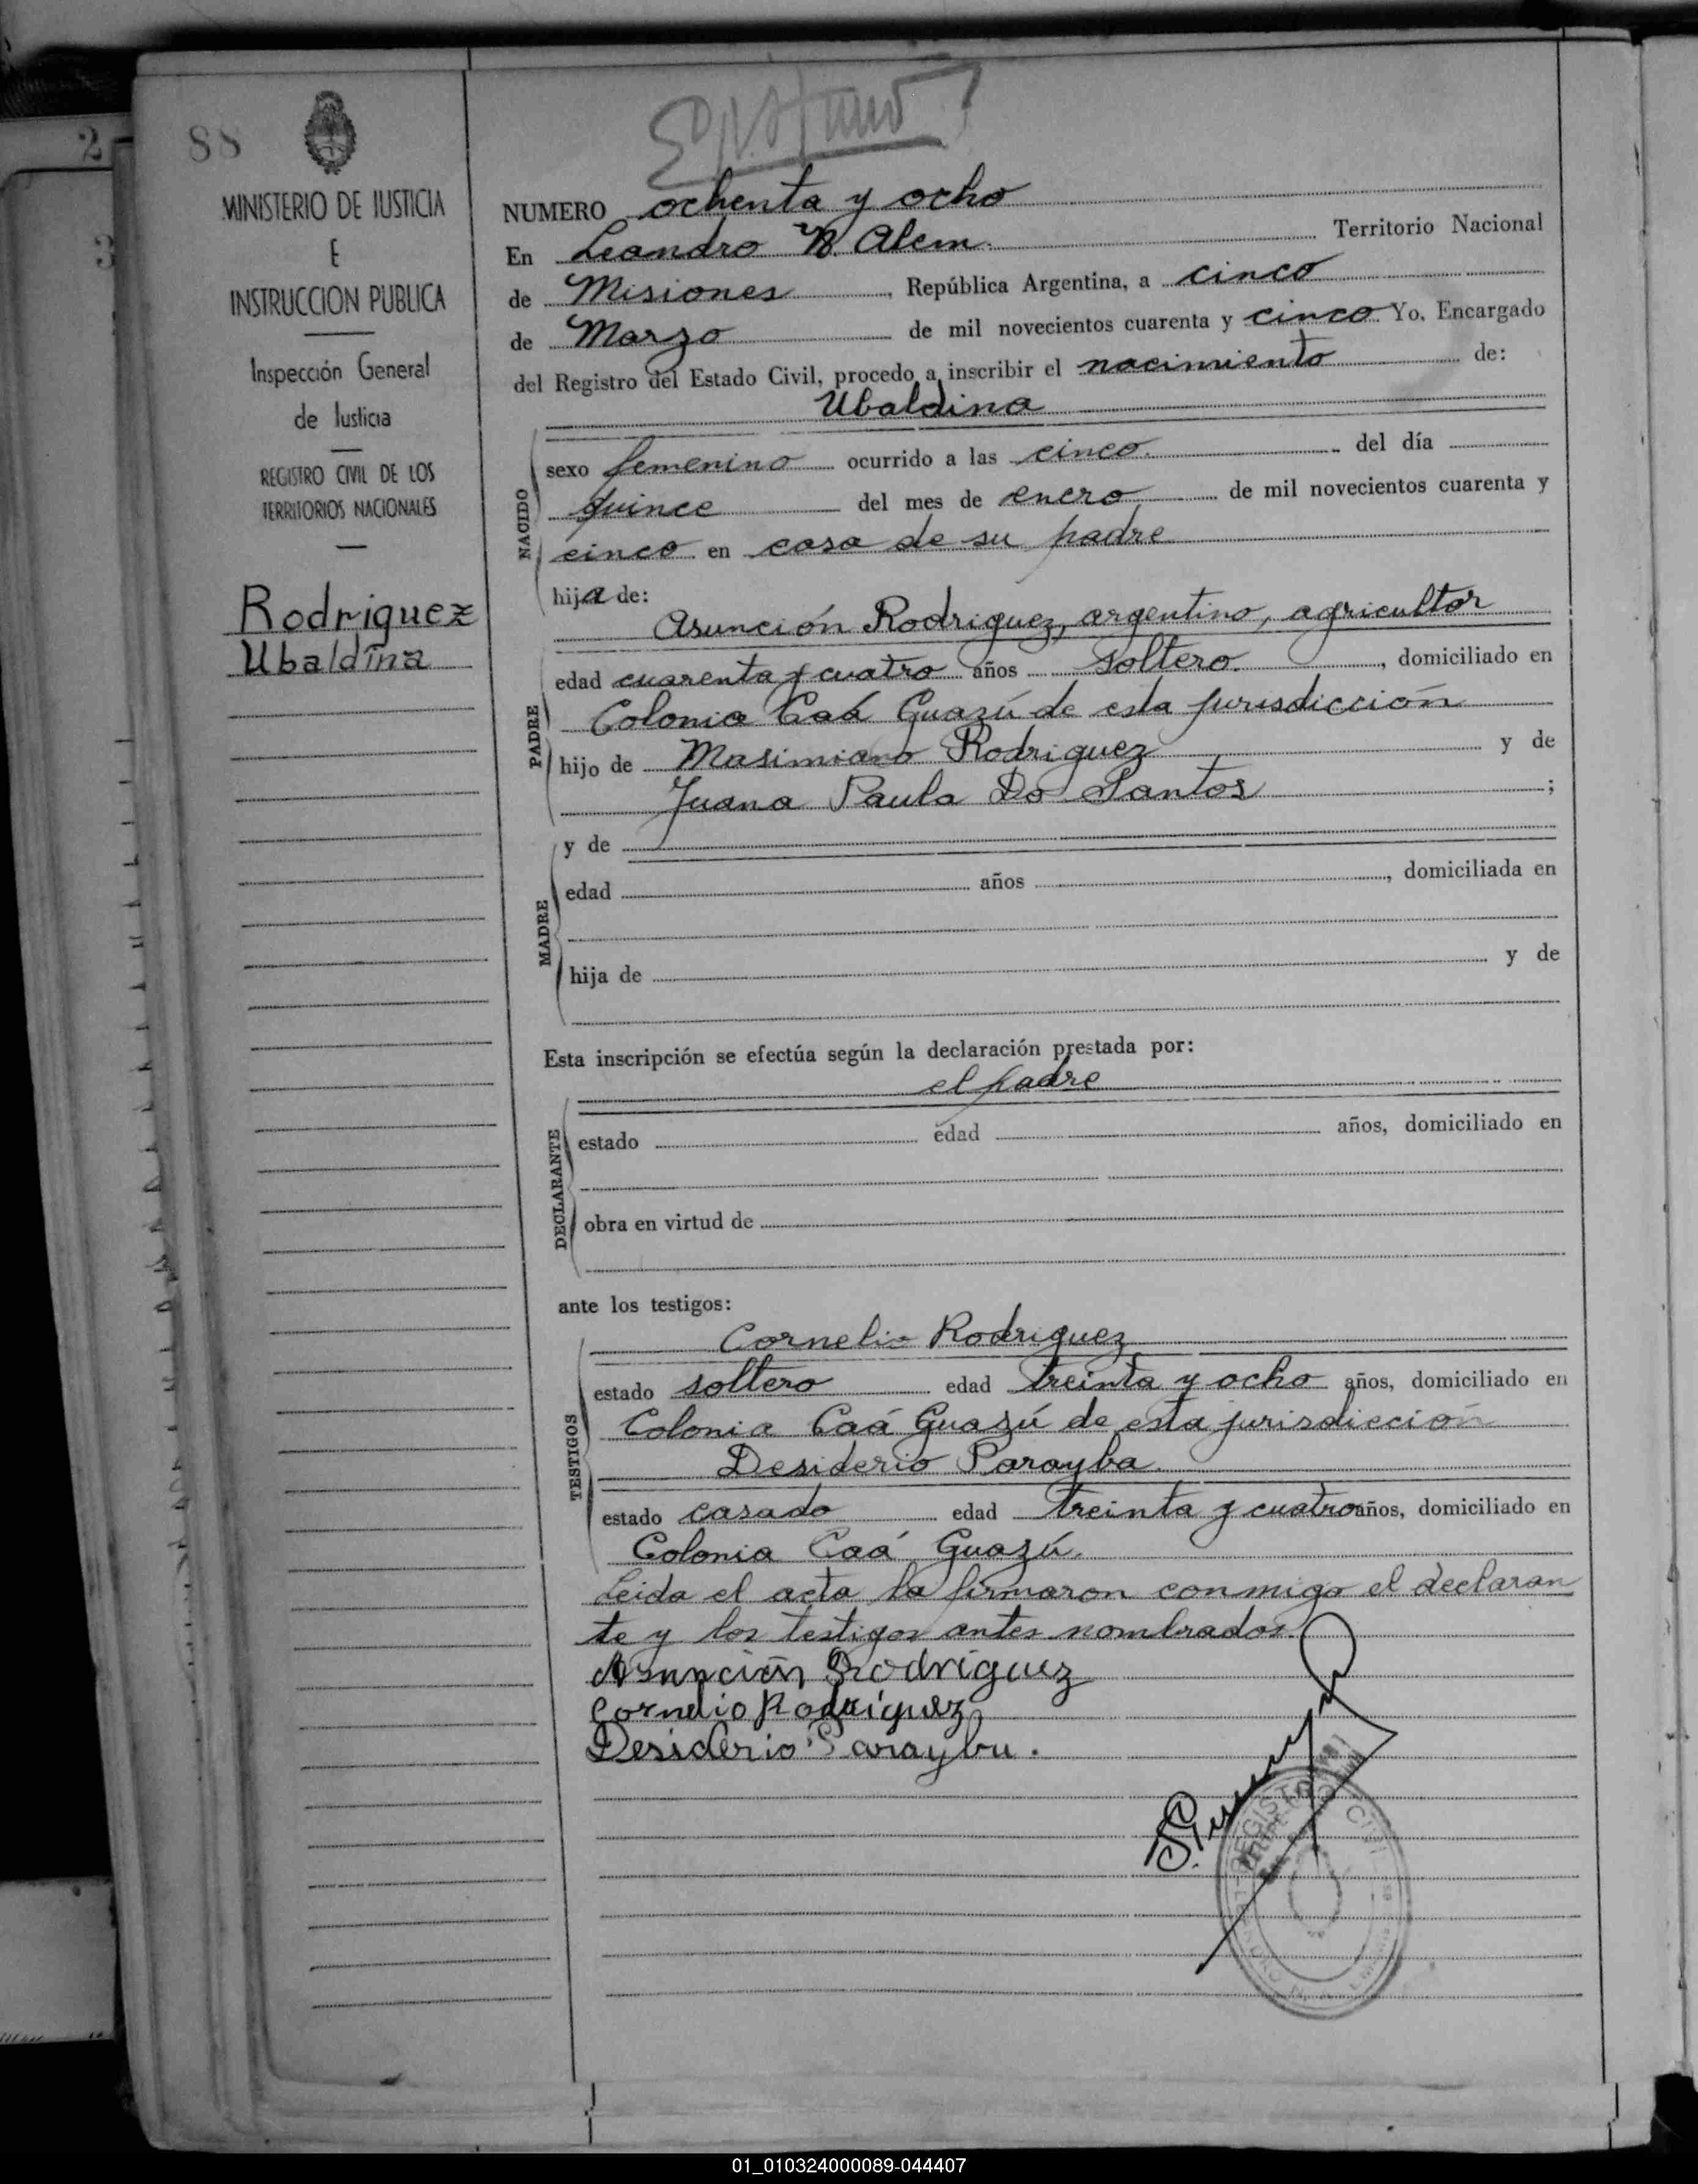 2
3
88
MINISTERIO DE JUSTICIA
E
INSTRUCCION PUBLICA
Inspección General
de Justicia
REGISTRO CIVIL DE LOS
TERRITORIOS NACIONALES
Rodriguez
Ubaldina
NUMERO ochenta y ocho
En Leandro N. Alem. Territorio Nacional
de Misiones, República Argentina, a cinco
de Marzo de mil novecientos cuarenta y cinco Yo, Encargado
del Registro del Estado Civil, procedo a inscribir el nacimiento de:
Ubaldina
NACIDO
sexo femenino ocurrido a las cinco. del día
quince del mes de enero de mil novecientos cuarenta y
cinco en casa de su padre
hija de:
PADRE
Asunción Rodriguez, argentino, agricultor
edad cuarenta y cuatro años soltero., domiciliado en
Colonia Caá Guazú de esta jurisdicción
hijo de Masimiano Rodriguez y de
Juana Paula Do Santos;
MADRE
y de
edad años, domiciliada en
hija de y de
Esta inscripción se efectúa según la declaración prestada por:
el padre
DECLARANTE
estado edad años, domiciliado en
obra en virtud de
ante los testigos:
TESTIGOS
Cornelio Rodriguez
estado soltero edad treinta y ocho años, domiciliado en
Colonia Caá Guazú de esta jurisdicción
Desiderio Parayba
estado casado edad treinta y cuatro años, domiciliado en
Colonia Caá Guazú.
Leida el acta la firmaron conmigo el declaran
te y los testigos antes nombrados.
Asunción Rodriguez
Cornelio Rodriguez
Desiderio Parayba.
REGISTRO CIVIL
01_010324000089-044407